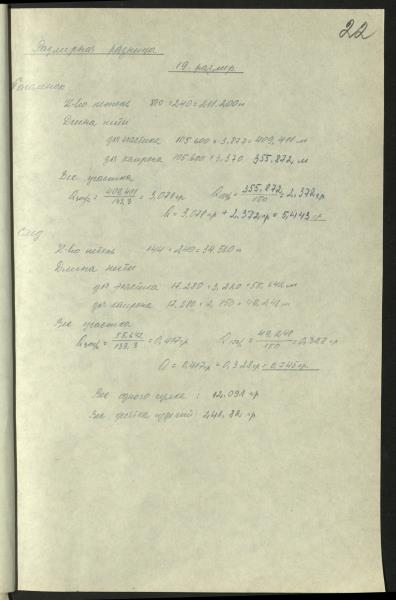 22
Размерная разница
19. размер
Паголенок
К-во петель 880 × 240 = 211.200 п
Длина нити
для эластика 105.600 × 3.877 = 409,411 м
для капрона 105.600 × 3.370 355.872, м
Вес участка
= 409,411 / 133,3 = 3,071 гр = 355.872 / 150 = 2.372 гр
= 3.071 гр + 2.372 гр = 5,443 гр
След
К-во петель 144 × 240 = 34.560 п
Длина нити
для эластика 17.280 × 3,220 = 55.642 м
для капрона 17.280 × 2,850 = 49,248 м
Вес участка
= 55.642 / 133,3 = 0,417 гр = 49,248 / 150 = 0,328 гр
= 0,417 гр + 0,328 гр = 0,745 гр
Вес одного чулка : 12.091 гр
Вес десятка изделий 241.82 гр